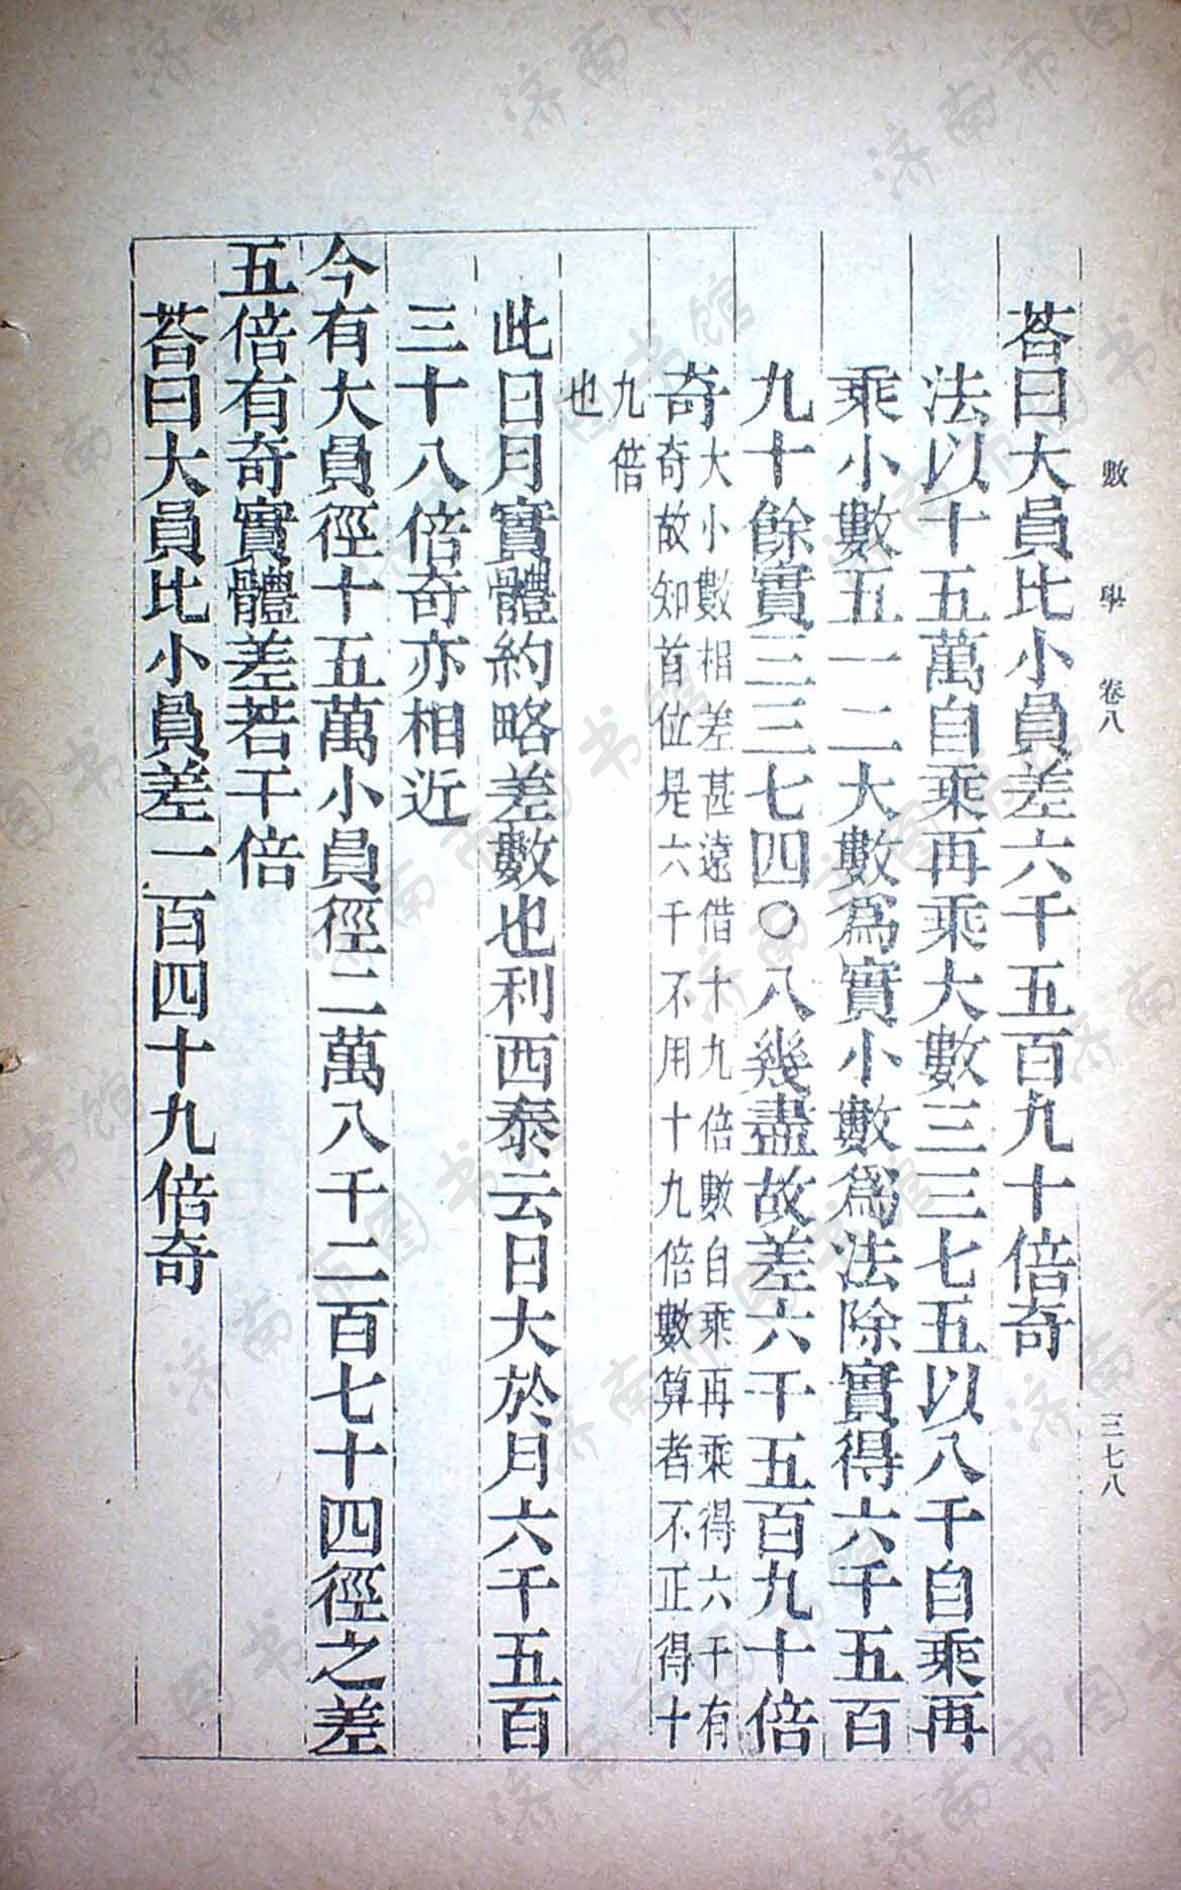 數學 卷八 三七八
荅曰大員比小員差六千五百九十倍奇
法以十五萬自乘再乘大數三三七五以八千自乘再
乘小數五一二大數為實小數為法除實得六千五百
九十餘實三三七四〇八幾盡故差六千五百九十倍
奇大小數相差甚遠借十九倍數自乘再乘得六千有
奇故知首位是六千不用十九倍數算者不正得十
九倍
也
此日月實體約略差數也利西泰云日大於月六千五百
三十八倍奇亦相近
今有大員徑十五萬小員徑二萬八千二百七十四徑之差
五倍有奇實體差若干倍
荅曰大員比小員差一百四十九倍奇